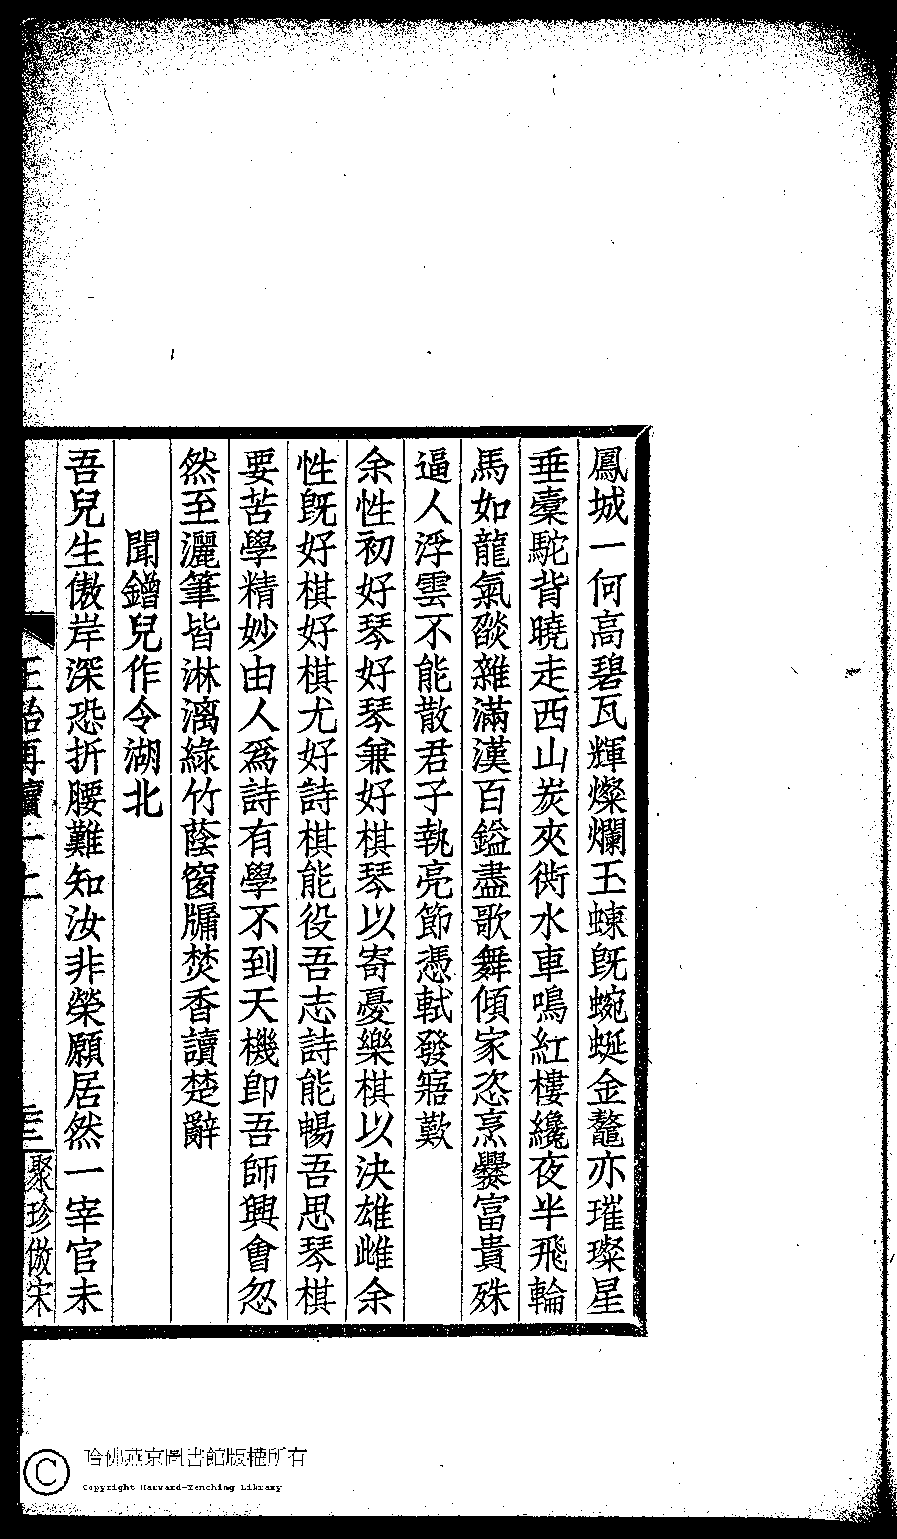 鳳城一何高碧瓦輝燦爛玉蝀旣蜿蜒金鼇亦璀璨星
垂槖駝背曉走西山炭夾衖水車鳴紅樓纔夜半飛輪
馬如龍氣燄雜滿漢百鎰盡歌舞傾家恣烹爨富貴殊
逼人浮雲不能散君子執亮節憑軾發寤歎
余性初好琴好琴兼好棋琴以寄憂樂棋以決雄雌余
性旣好棋好棋尤好詩棋能役吾志詩能暢吾思琴棋
要苦學精妙由人爲詩有學不到天機卽吾師興會忽
然至灑筆皆淋漓綠竹蔭窗牖焚香讀楚辭
聞鏳兒作令湖北
吾兒生傲岸深恐折腰難知汝非榮願居然一宰官未
再續一上
聚珍倣宋
哈佛燕京圖書館版權所有
Copyright Harvard-Yenching Library